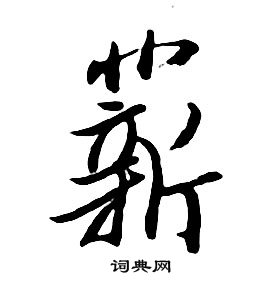 薪
词典网